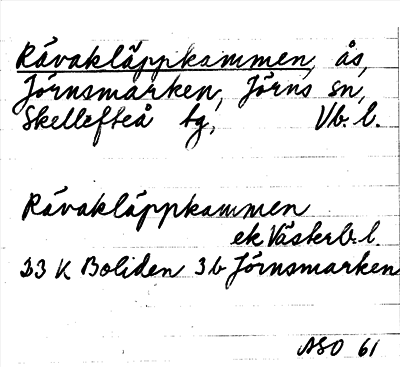 Råvakläppkammen, ås,
Jörnsmarken, Jörns sn,
Skellefteå tg, Vb. l.
Råvakläppkammen
ek Västerb. l.
23 K Boliden 3b Jörnsmarken
ASO 61